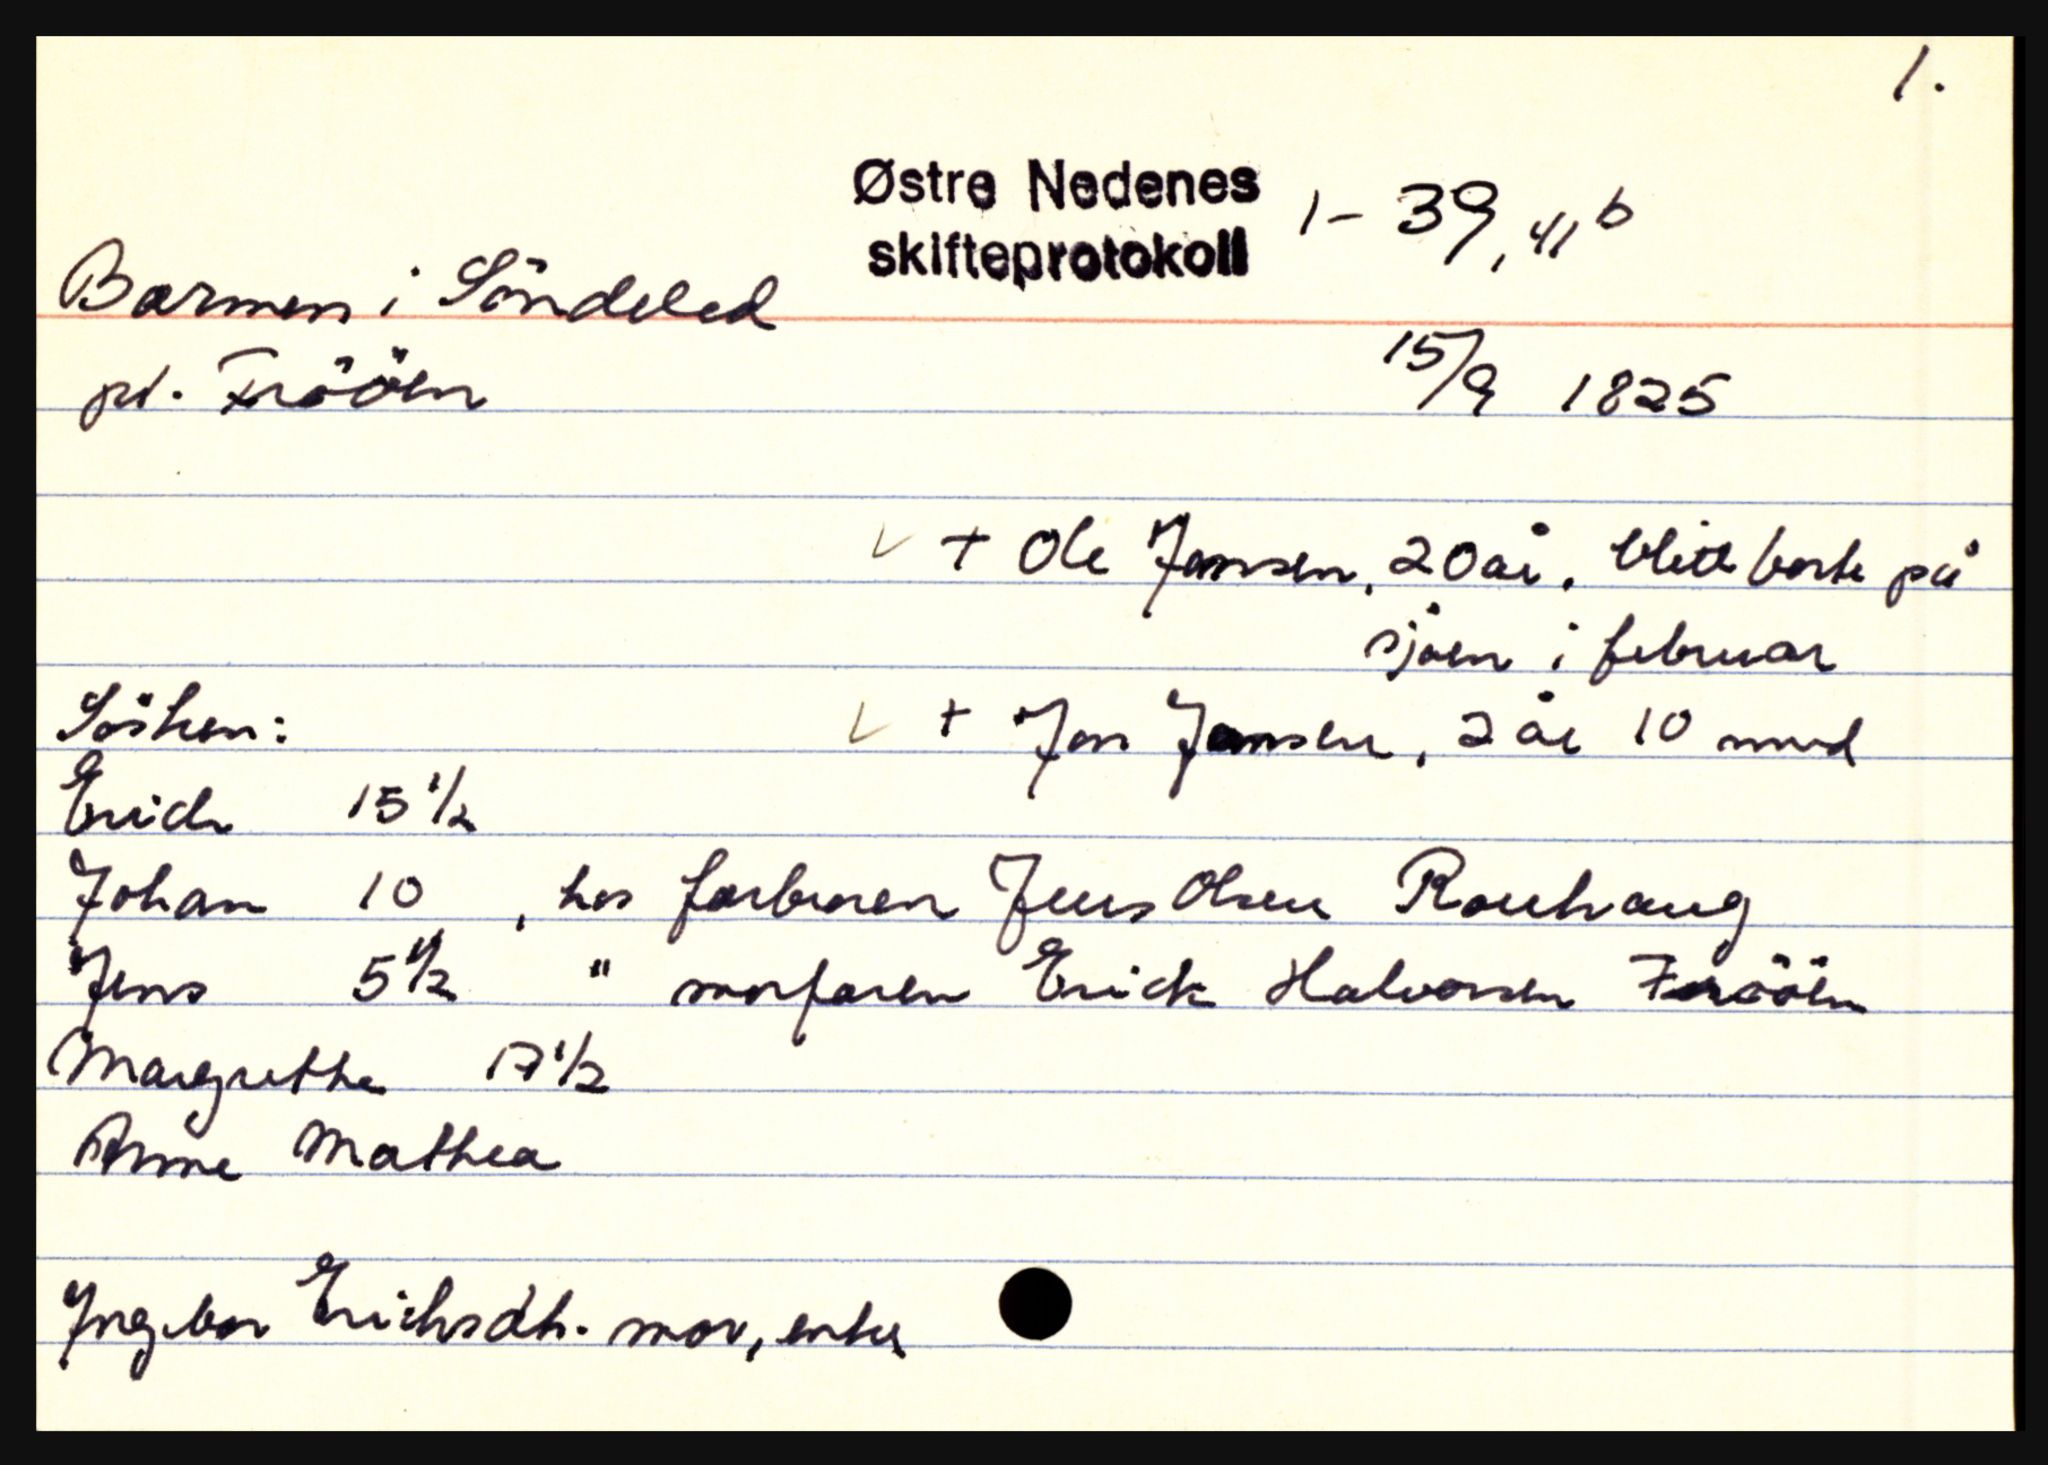 1.
Østre Nedenes
skifteprotokoll 1- 39, 41 b
Barmen i Söndeled
pl. Frööen
15/9 1825
+ Ole Jansen, 20 år, blitt borte på
sjøen i februar
Sösken:
+ Jon Jansen, 2 år 10 mnd
Erich 15 1/2
Johan 10, hos farbroren Jens Olsen
Jens 5 1/2 " morfaren Erick Halvorsen Frööen
Margrethe 17 1/2
Anne Mathea
Ingebor Erichsdtr. mor, enke